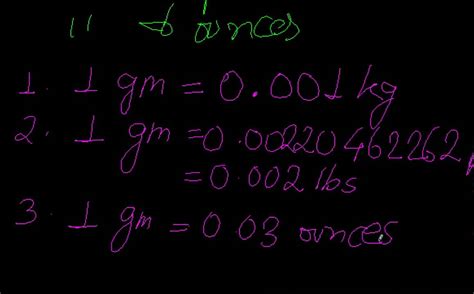 " to ounces
1. 1 gm = 0.001 kg
2. 1 gm = 0.00220462262
= 0.002 lbs
3. 1 gm = 0.03 ounces